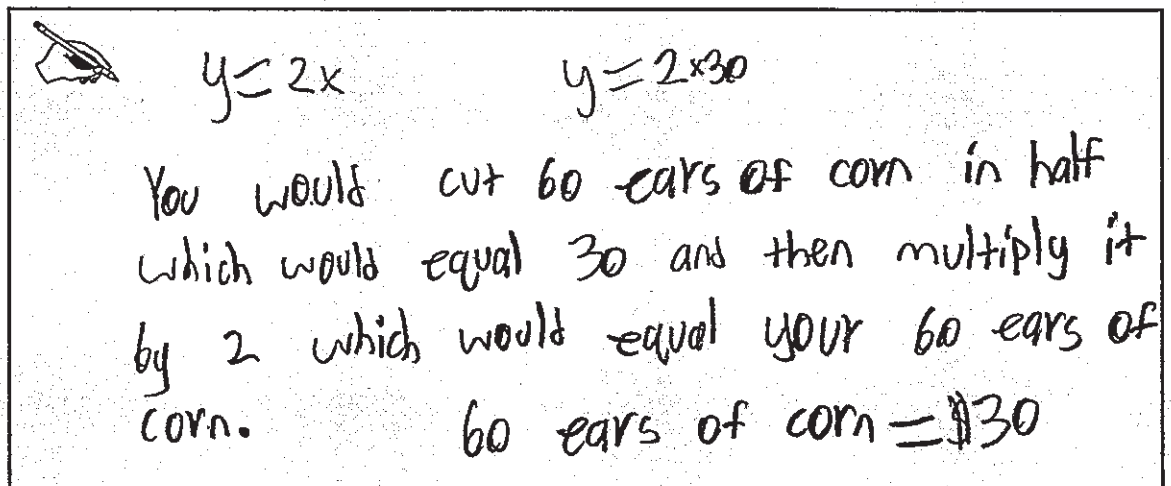 y = 2x y = 2x30
You would cut 60 ears of corn in half
which would equal 30 and then multiply it
by 2 which would equal your 60 ears of
corn. 60 ears of corn = $30